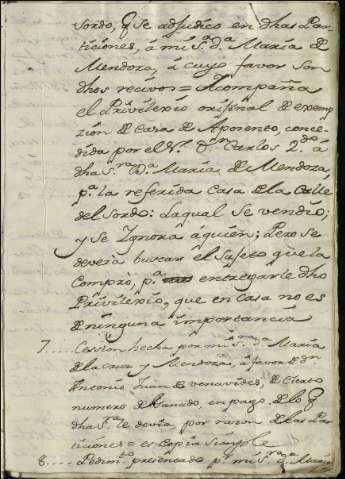 sordo, q se adjudico en dhas Par-
ticiones, á mi S.ª D.ª Maria de
Mendoza, á cuyo favor son
dhos recivos = Acompaña
el Privilexio orixinal de exemp-
zion de Casa de Aposento, conce-
dida por el S.r D.n Carlos 2.do á
dha S.ra D.ª Maria de Mendoza,
p.ª la referida Casa de la Calle
del Sordo: Laqual se vendio;
y se Ygnora áquien; Pero se
devera buscar el Sujeto que la
Compró, p.ª entregarle dho
Privilexio, que en casa no es
de ninguna importancia
7.... Cession hecha por mi S.ra D.ª Maria
de la y Mendoza, á favor de D.n
Antonio Juan de Venavides, de Cierto
numero de Ganado, en pago de lo q
dha S.ra le devia por razon de las Par-
ticiones = es Copia Simple
8.... Pedim.to presentado p.r mi S.ra D.ª Maria